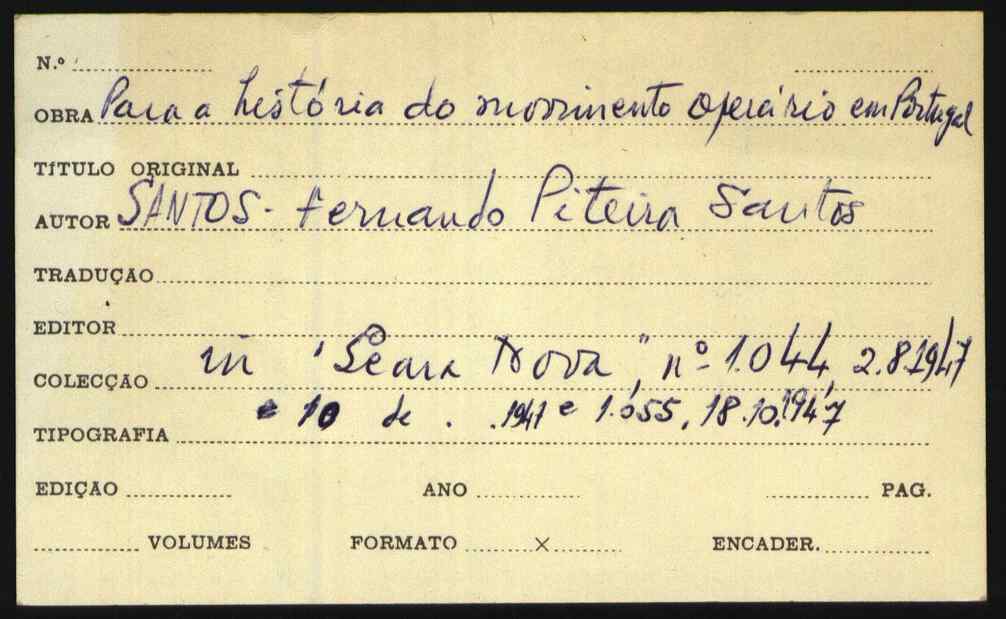 N.º
OBRA Para a história do movimento operário em Portugal
TÍTULO ORIGINAL
AUTOR SANTOS - Fernando Piteira Santos
TRADUÇÃO
EDITOR
COLECÇÃO in "Seara Nova", nº 1.044, 2.8.1947
e 10 de . . 1947 e 1.055, 18.10.1947
TIPOGRAFIA
EDIÇÃO ANO PAG.
VOLUMES FORMATO × ENCADER.